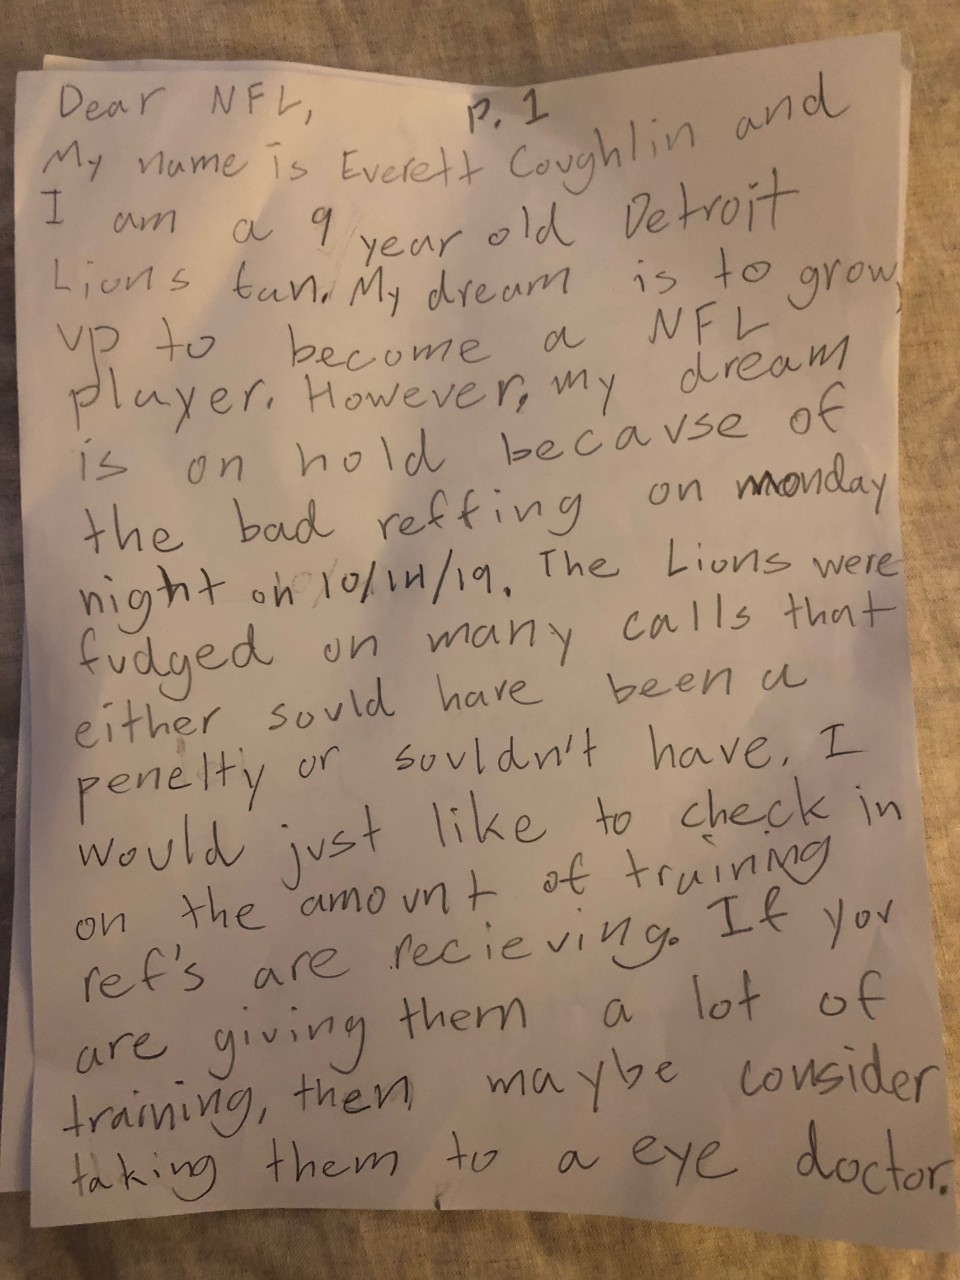 Dear NFL, p. 1
My name is Everett Coughlin and
I am a 9 year old Detroit
Lions fan. My dream is to grow
up to become a NFL
player. However, my dream
is on hold because of
the bad reffing on monday
night on 10/14/19. The Lions were
fudged on many calls that
either sould have been a
penelty or souldn't have. I
would just like to check in
on the amount of training
ref's are recieving. If you
are giving them a lot of
training, then maybe consider
taking them to a eye doctor.